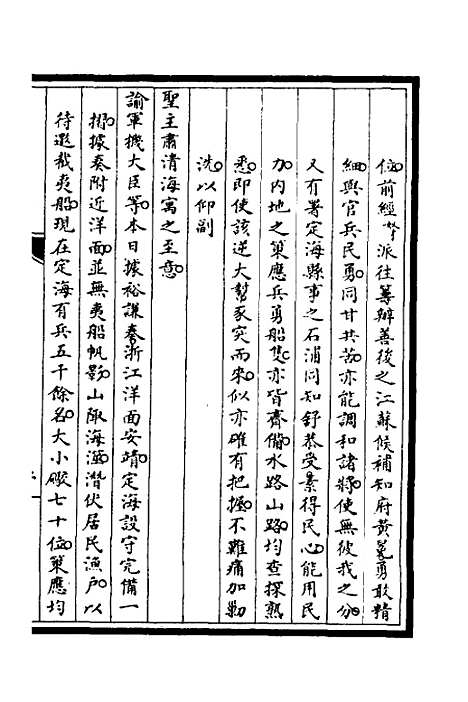 位前經拏派往籌辦善後之江蘇候補知府黃冕勇敢精
細與官兵民勇同甘共苦亦能調和諸將使無彼我之分
又有署定海縣事之石浦同知舒恭受素得民心能用民
力內地之策應兵勇船隻亦皆齊備水路山路均查探熟
悉即使該逆大幫豕突而來似亦確有把握不難痛加勦
洗以仰副
聖主肅清海寓之至意
諭軍機大臣等本日據裕謙奏浙江洋面安靖定海設守完備一
摺據奏附近洋面並無夷船帆影山陬海澨潛伏居民漁戶以
待邀截夷船現在定海有兵五千餘名大小礮七十位策應均